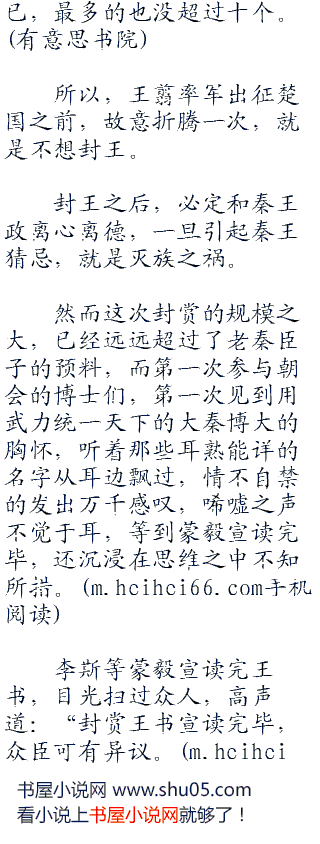 已，最多的也没超过十个。
(有意思书院)
所以，王翦率军出征楚
国之前，故意折腾一次，就
是不想封王。
封王之后，必定和秦王
政离心离德，一旦引起秦王
猜忌，就是灭族之祸。
然而这次封赏的规模之
大，已经远远超过了老秦臣
子的预料，而第一次参与朝
会的博士们，第一次见到用
武力统一天下的大秦博大的
胸怀，听着那些耳熟能详的
名字从耳边飘过，情不自禁
的发出万千感叹，唏嘘之声
不觉于耳，等到蒙毅宣读完
毕，还沉浸在思维之中不知
所措。(m.hcihci66.com手机
阅读)
李斯等蒙毅宣读完王
书，目光扫过众人，高声
道：“封赏王书宣读完毕，
众臣可有异议。(m.hcihci
书屋小说网 www.shu05.com
看小说上书屋小说网就够了！